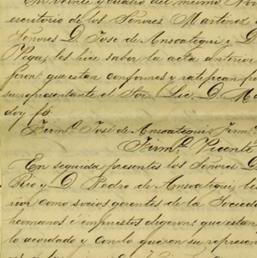 En veinte y cuatro del mismo Nov
escritorio de los Señores Martinez
Señores D. José de Ansoategui i D.
Vega, les hice saber la acta anterior
quo estan conformes y ratifican
su representante el Sor. Lic. D. M
doy fé.
Firmo. José de Ansoategui. Firmo.
Firmo. Vicente
En seguida presentes los Señores D.
Pio y D. Pedro de Ansoategui,
como socios gerentes de la Socieda
hermanos é impuestos dijeron: que estan
lo acordado y con lo que en su represen